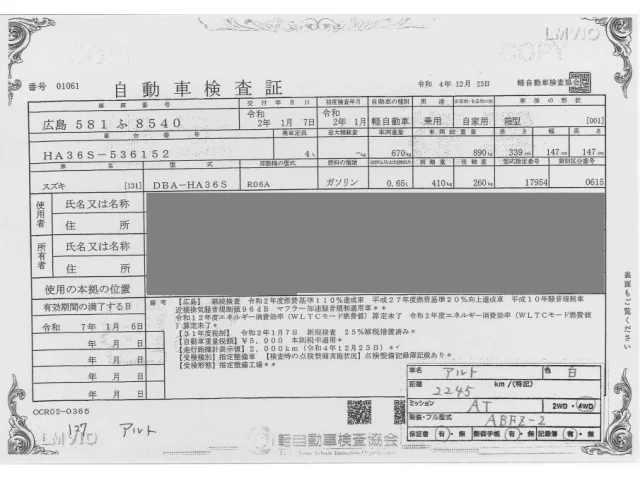 LMVIO
COPY
番号 01061
自動車検査証
令和 4年 12月 23日
軽自動車検査協会
車両番号 交付年月日 初度検査年月 自動車の種別 用途 自家用・事業用の別 車体の形状
広島 581 ふ 8540 令和 2年 1月 7日 令和 2年 1月 軽自動車 乗用 自家用 箱型 [001]
車台番号 乗車定員 最大積載量 車両重量 車両総重量 長さ 幅 高さ
HA36S-536152 4人 -kg 670kg 890kg 339cm 147cm 147cm
車名 型式 原動機の型式 燃料の種類 前軸重 後軸重 型式指定番号 類別区分番号
スズキ [131] DBA-HA36S R06A ガソリン 0.65L 410kg 260kg 17954 0615
使用者 氏名又は名称
住所
所有者 氏名又は名称
住所
使用の本拠の位置
有効期間の満了する日
令和 7年 1月 6日
年 月 日
年 月 日
年 月 日
備考
[広島] 継続検査 令和2年度燃費基準110%達成車 平成27年度燃費基準20%向上達成車 平成10年騒音規制車
近接排気騒音規制値96dB マフラー加速騒音規制適用車**
令和12年度エネルギー消費効率(WLTCモード燃費値)算定未了 令和2年度エネルギー消費効率(WLTCモード燃費値)算定未了*
[31年度税制] 令和2年1月7日 新規検査 25%被視措置済み*
[自動車重量税額] ¥5,000 本則税率適用*
[走行距離計表示値] 2,000km (令和4年12月23日)*
[受検種別] 指定整備車 [検査時の点検整備実施状況] 点検整備記録簿記載あり*
[受検形態] 指定整備工場**
裏面もご覧ください
車名 アルト 色 白
距離 2245 km/(特記)
ミッション AT 2WD・4WD
類装・フル型式 ABFZ-2
保証書 有・無 整備手帳 有・無 記録簿 有・無
OCR02-0365
127 アルト
LMVIO
軽自動車検査協会